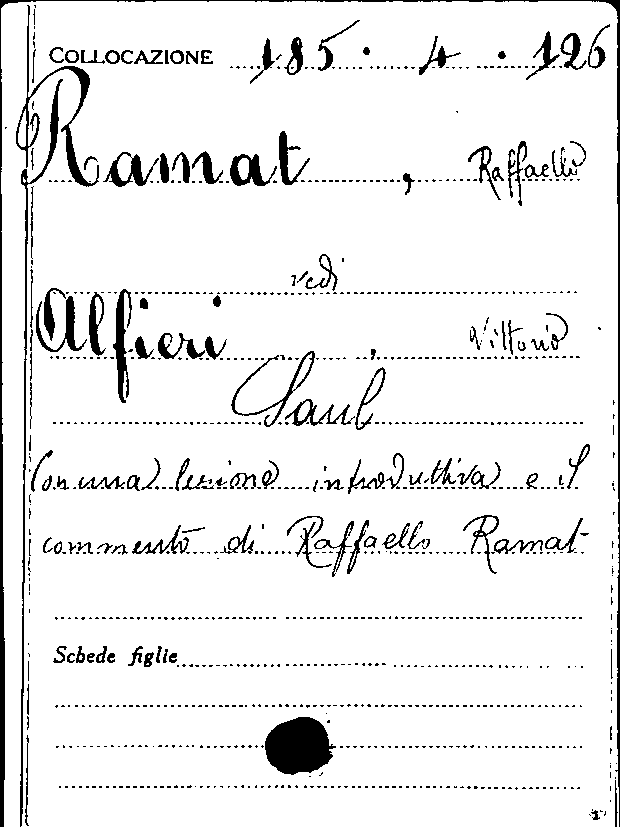 COLLOCAZIONE 185 · 4 · 126
Ramat, Raffaello
vedi
Alfieri, Vittorio
Saul
Con una lezione introduttiva e il
commento di Raffaello Ramat
Schede figlie